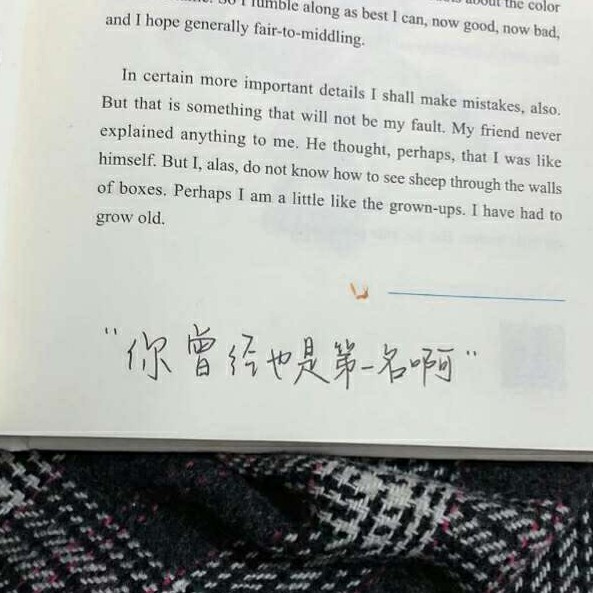 So I fumble along as best I can, now good, now bad,
and I hope generally fair-to-middling.
In certain more important details I shall make mistakes, also.
But that is something that will not be my fault. My friend never
explained anything to me. He thought, perhaps, that I was like
himself. But I, alas, do not know how to see sheep through the walls
of boxes. Perhaps I am a little like the grown-ups. I have had to
grow old.
“你曾经也是第一名啊”